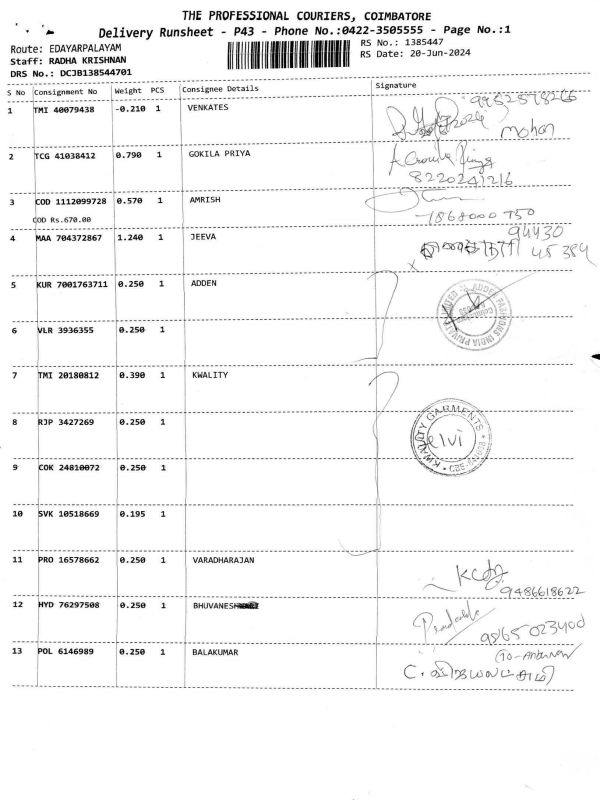 THE PROFESSIONAL COURIERS, COIMBATORE
Delivery Runsheet - P43 - Phone No.:0422-3505555 - Page No.:1
Route: EDAYARPALAYAM
RS No.: 1385447
Staff: RADHA KRISHNAN
RS Date: 20-Jun-2024
DRS No.: DCJB138544701
S No Consignment No Weight PCS Consignee Details Signature
1 TMI 40079438 -0.210 1 VENKATES
Mohan
2 TCG 41038412 0.790 1 GOKILA PRIYA
8220241216
3 COD 1112099728 0.570 1 AMRISH
COD Rs.670.00
4 MAA 704372867 1.240 1 JEEVA
94430
45384
5 KUR 7001763711 0.250 1 ADDEN
6 VLR 3936355 0.250 1
7 TMI 20180812 0.390 1 KWALITY
KWALITY GARMENTS
elvi
8 RJP 3427269 0.250 1
9 COK 24810072 0.250 1
10 SVK 10518669 0.195 1
11 PRO 16578662 0.250 1 VARADHARAJAN
9486618622
12 HYD 76297508 0.250 1 BHUVANESH
9865023400
13 POL 6146989 0.250 1 BALAKUMAR